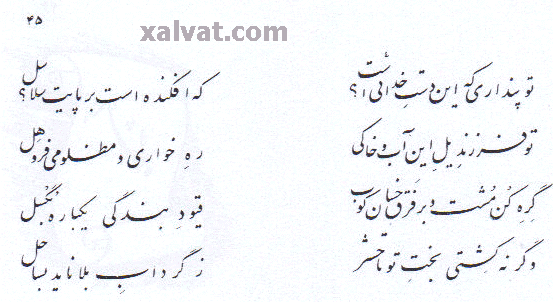 ۴۵
xalvat.com
تو پنداری که این دستِ خدائی است؟
که افکنده است بر پایت سلاسل؟
تو فرزندِ یلِ این آب و خاکی
رهِ خواری و مظلومی فروهِل
گِره کُن مُشت و بر فَرقِ خسان کوب
قیودِ بندگی یکباره بُگسل
وگرنه کِشتیِ بختِ تو تا حشر
ز گردابِ بلا ناید بساحل